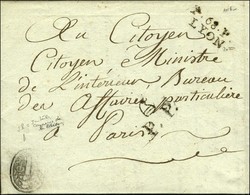 P. 68. P.
LYON
Au Citoyen
Citoyen e Ministre
de L'interieur Bureau
der Affaires particuliere
a Paris
P. P.